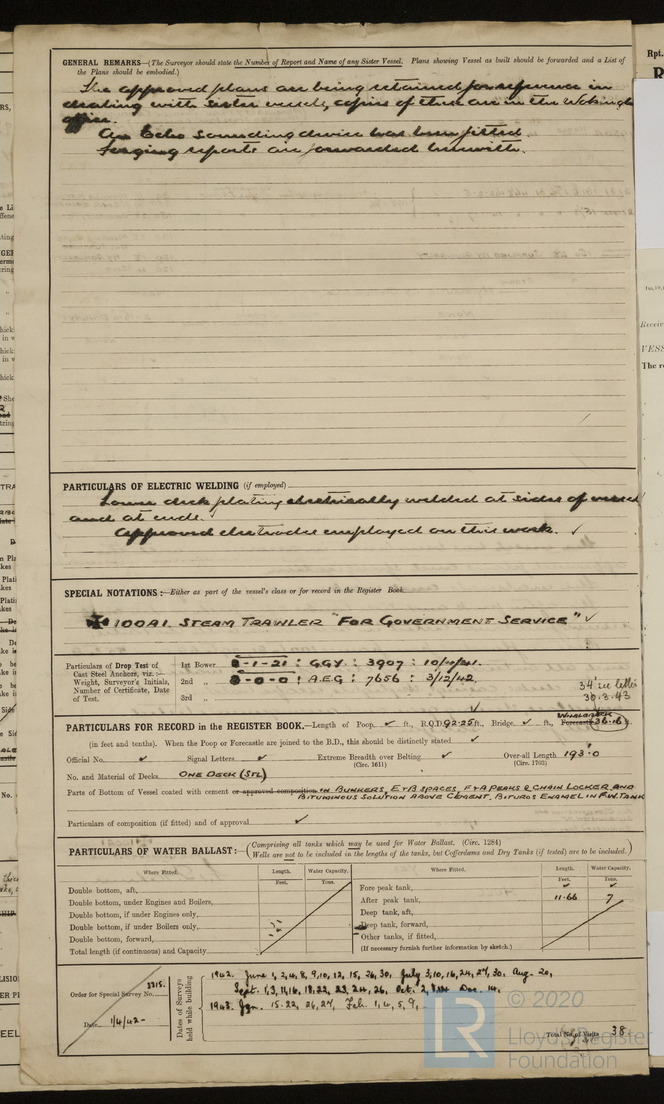 GENERAL REMARKS—(The Surveyor should state the Number of Report and Name of any Sister Vessel. Plans showing Vessel as built should be forwarded and a List of
the Plans should be embodied.)
The approved plans are being retained for reference in
dealing with sister vessels, copies of these are in the Wokingham
office.
An Echo sounding device has been fitted
Forging reports are forwarded herewith.
PARTICULARS OF ELECTRIC WELDING (if employed)
Lower deck plating electrically welded at sides of vessel
and at ends.
Approved electrodes employed on this work. ✓
SPECIAL NOTATIONS:—Either as part of the vessel's class or for record in the Register Book.
✠ 100A1. STEAM TRAWLER "FOR GOVERNMENT SERVICE" ✓
Particulars of Drop Test of
Cast Steel Anchors, viz.:—
Weight, Surveyor's Initials,
Number of Certificate, Date
of Test.
1st Bower 8-1-21 : GGY : 3907 : 10/4/41.
2nd „ 8-0-0 : A.E.G : 7656 : 3/12/42.
3rd „
30.3.43
PARTICULARS FOR RECORD in the REGISTER BOOK.—Length of Poop ✓ ft., R.Q.D. 92·25 ft., Bridge ✓ ft., Forecastle 36·16
(in feet and tenths). When the Poop or Forecastle are joined to the B.D., this should be distinctly stated ✓
Official No. ✓ Signal Letters ✓ Extreme Breadth over Belting ✓ Over-all Length 193·0
(Circ. 1611) (Circ. 1703)
No. and Material of Decks ONE DECK (STL)
Parts of Bottom of Vessel coated with cement or approved composition IN BUNKERS, E+B SPACES, F+A PEAKS & CHAIN LOCKER AND
BITUMINOUS SOLUTION ABOVE CEMENT, BITUROS ENAMEL IN F.W. TANK
Particulars of composition (if fitted) and of approval ✓
PARTICULARS OF WATER BALLAST:— (Comprising all tanks which may be used for Water Ballast. (Circ. 1284)
Wells are not to be included in the lengths of the tanks, but Cofferdams and Dry Tanks (if tested) are to be included.)
Where Fitted. Length. Water Capacity. Where Fitted. Length. Water Capacity.
Feet. Tons. Feet. Tons.
Double bottom, aft, Fore peak tank, ✓ ✓
Double bottom, under Engines and Boilers, After peak tank, 11·66 7
Double bottom, if under Engines only, Deep tank, aft,
Double bottom, if under Boilers only, Deep tank, forward,
Double bottom, forward, Other tanks, if fitted,
Total length (if continuous) and Capacity (If necessary furnish further information by sketch.)
Order for Special Survey No. 3315.
Date 1/4/42-
Dates of Surveys
held while building
1942. June 1, 2, 4, 8, 9, 10, 12, 15, 26, 30, July 3, 10, 16, 24, 27, 30, Aug. 20,
Sept. 1, 3, 11, 16, 18, 22, 23, 24, 26, Oct. 2, Dec. 14,
1943. Jan. 15-22, 26, 27, Feb. 1, 4, 5, 9,
Total No. of Visits 38
© 2020
LR
Lloyd's Register
Foundation